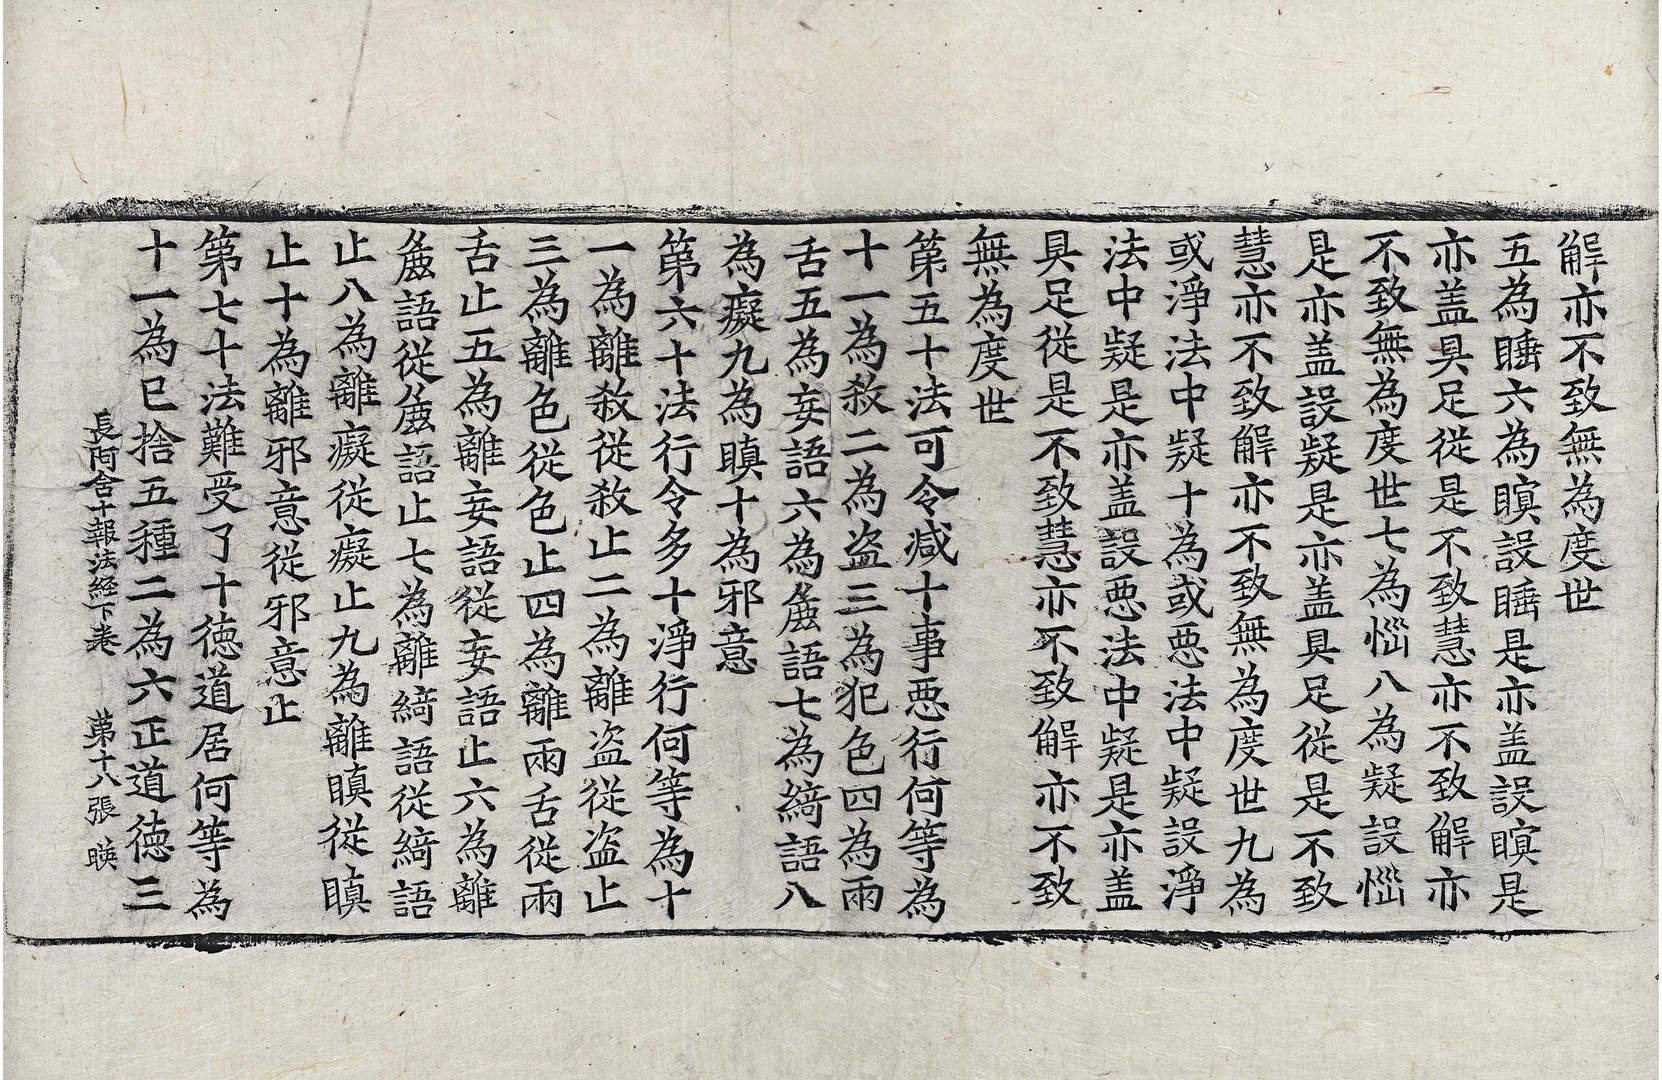 解亦不致無為度世
五為睡六為瞑設睡是亦盖設瞑是
亦盖具足從是不致慧亦不致解亦
不致無為度世七為惱八為疑設惱
是亦盖設疑是亦盖具足從是不致
慧亦不致解亦不致無為度世九為
或淨法中疑十為或惡法中疑設淨
法中疑是亦盖設惡法中疑是亦盖
具足從是不致慧亦不致解亦不致
無為度世
第五十法可令减十事惡行何等為
十一為殺二為盗三為犯色四為兩
舌五為妄語六為麁語七為綺語八
為癡九為瞋十為邪意
第六十法行令多十淨行何等為十
一為離殺從殺止二為離盗從盗止
三為離色從色止四為離兩舌從兩
舌止五為離妄語從妄語止六為離
麁語從麁語止七為離綺語從綺語
止八為離癡從癡止九為離瞋從瞋
止十為離邪意從邪意止
第七十法難受了十德道居何等為
十一為已捨五種二為六正道德三
長阿含十報法經下卷 第十八張 暎